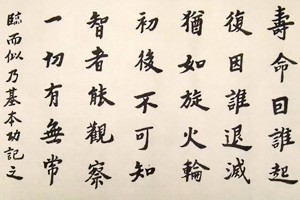 壽命日誰起
復因誰退滅
猶如旋火輪
初後不可知
智者能觀察
一切有無常
臨而似乃基本功記之